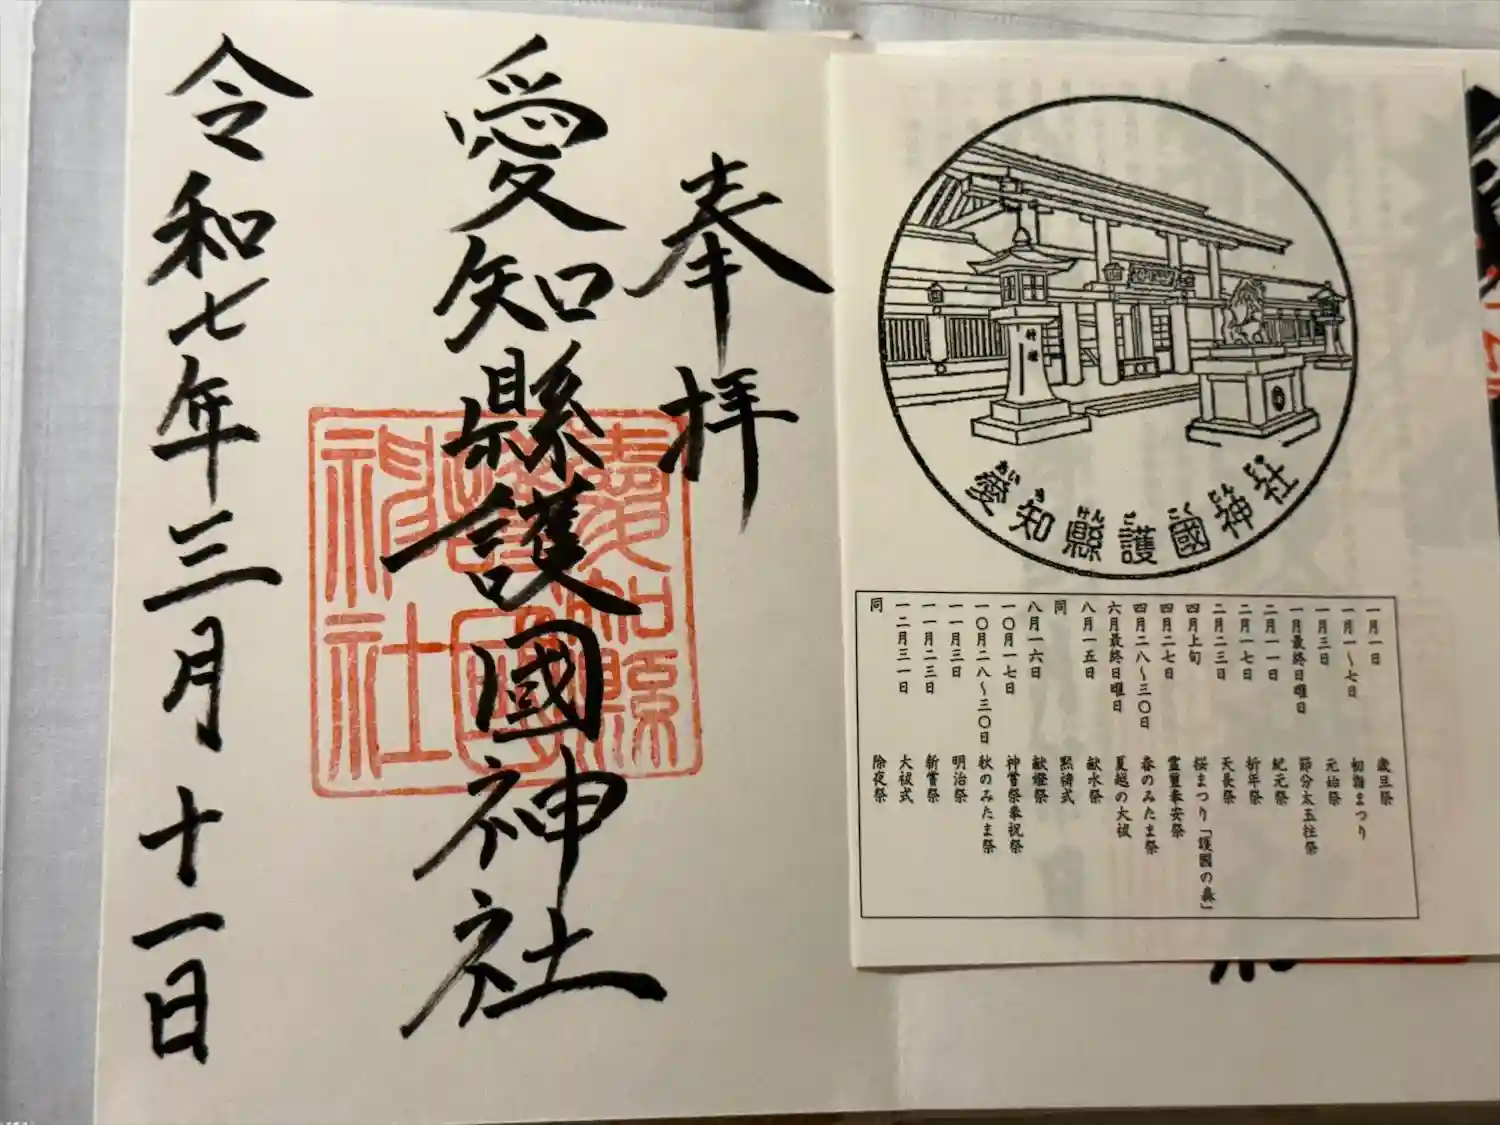 奉拝
愛知縣護國神社
令和七年三月十一日
愛知縣
護國
神社
愛知縣護國神社
一月一日 歳旦祭
一月一〜七日 初詣まつり
一月三日 元始祭
一月最終日曜日 節分太玉柱祭
二月一一日 紀元祭
二月一七日 祈年祭
二月二三日 天長祭
四月上旬 桜まつり「護國の森」
四月二七日 霊璽奉安祭
四月二八〜三〇日 春のみたま祭
六月最終日曜日 夏越の大祓
八月一五日 献水祭
同 黙祷式
八月一六日 献燈祭
一〇月一七日 神嘗祭奉祝祭
一〇月二八〜三〇日 秋のみたま祭
一一月三日 明治祭
一一月二三日 新嘗祭
一二月三一日 大祓式
同 除夜祭